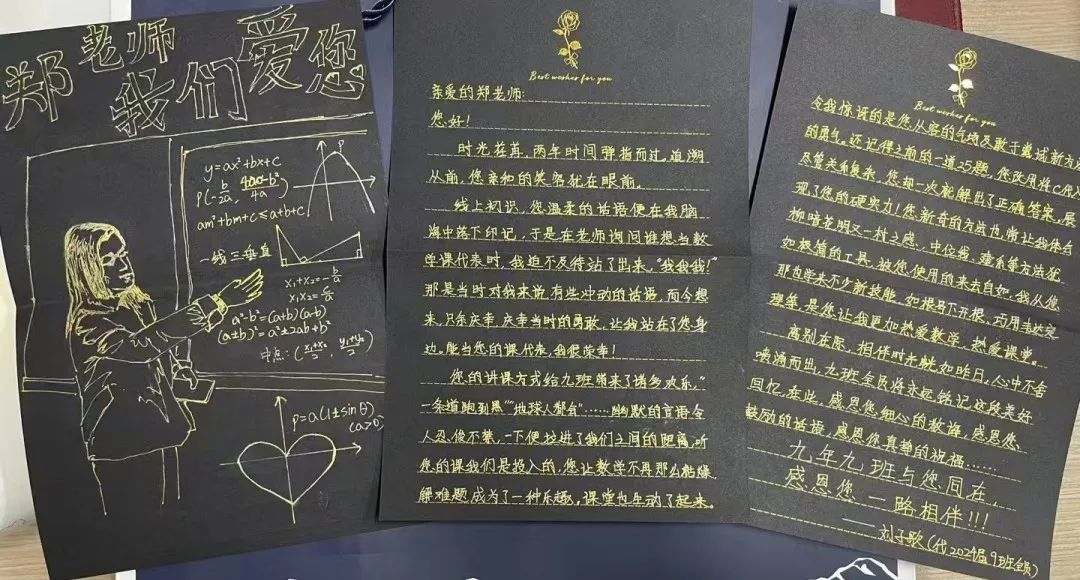 郑老师
我们爱您
y=ax²+bx+c
P(-b/2a, 4ac-b²/4a)
am²+bm+c≤a+b+c
P
一线三垂直
x₁+x₂=-b/a
x₁x₂=c/a
a²-b²=(a+b)(a-b)
(a±b)²=a²±2ab+b²
中点:(x₁+x₂/2, y₁+y₂/2)
ρ=a(1±sinθ)
(a>0)
Best wishes for you
亲爱的郑老师:
您好!
时光荏苒,两年时间弹指而过,追溯
从前,您亲和的笑容犹在眼前。
线上初识,您温柔的话语便在我脑
海中落下印记,于是在老师询问谁想当数
学课代表时,我迫不及待站了出来,“我我我!”
那是当时对我来说有些冲动的话语,而今想
来,只余庆幸,庆幸当时的勇敢,让我站在了您身
边。能当您的课代表,我很荣幸!
您的讲课方式给九班带来了诸多欢乐,“
一条道跑到黑”“地球人都会”……幽默的言语令
人忍俊不禁,一下便拉进了我们之间的距离,听
您的课我们是投入的,您让数学不再那么枯燥
解难题成为了一种乐趣,课堂也生动了起来。
Best wishes for you
令我惊讶的是您从容的气场及敢于尝试新方法
的勇气,还记得之前的一道25题,您改用将C代入
尽管关系复杂,您却一次就解出了正确答案,展
现了您的硬实力!您新奇的方法也常让我体会
柳暗花明又一村之感。中位线、建系等方法犹
如极简的工具,被您使用的来去自如,我从您
那也学来不少新技能,如根号不开根、巧用韦达定
理等,是您让我更加热爱数学、热爱课堂。
离别在际,相伴时光就如昨日,心中不舍
喷涌而出,九班全员将永远铭记这段美好
回忆,在此,感恩您细心的教诲,感恩您
鼓励的话语,感恩你真挚的祝福……
九年九班与您同在
感恩您一路相伴!!!
——刘子歌(代2024届9班全员)